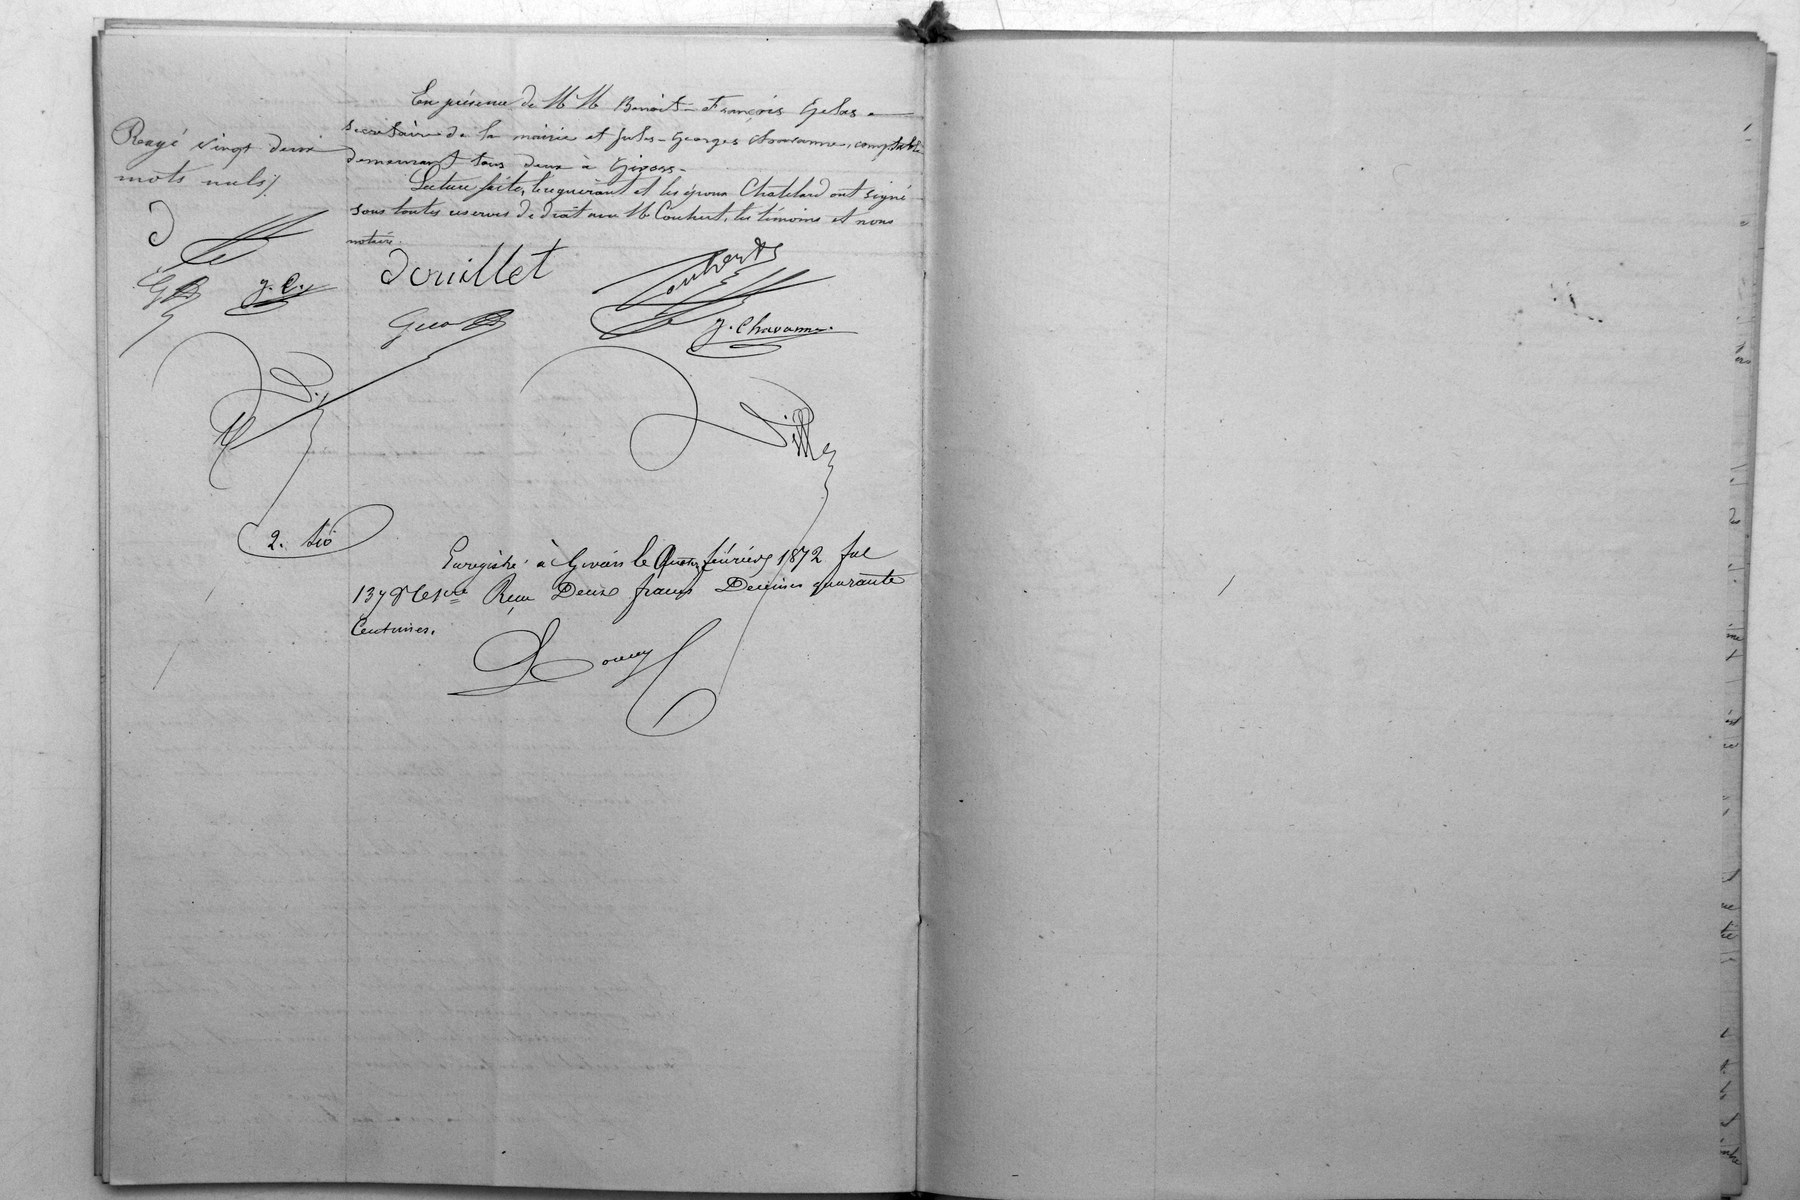 En présence de MM Benoit-François Gelas
secrétaire de la mairie et Jules-Georges Chavanne, comptable
demeurant tous deux à Givors.
Lecture faite, le requérant et les époux Chatelard ont signé
sous toutes réserves de droit avec M Couhert, les témoins et nous
notaire.
Rayé vingt deux
mots nuls
J. C.
Douillet
Couhert
J. Chavanne
2. 40
Enregistré à Givors le février 1872 fol
137 Reçu Deux francs Decimes quarante
Centimes.